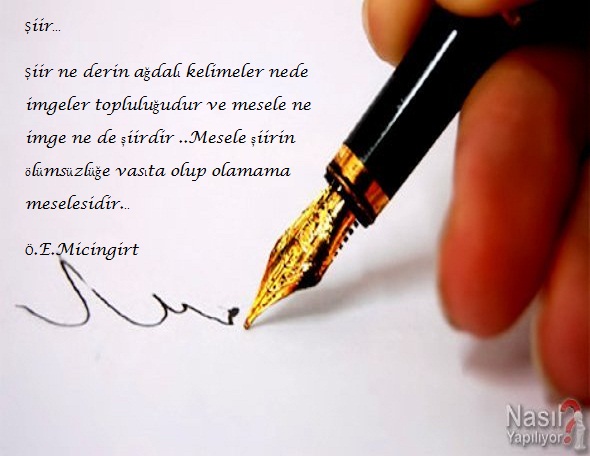 Şiir...
Şiir ne derin ağdalı kelimeler nede
imgeler topluluğudur ve mesele ne
imge ne de şiirdir ..Mesele şiirin
ölümsüzlüğe vasıta olup olamama
meselesidir...
Ö.E.Micingirt
Nasıl
Yapılıyor?